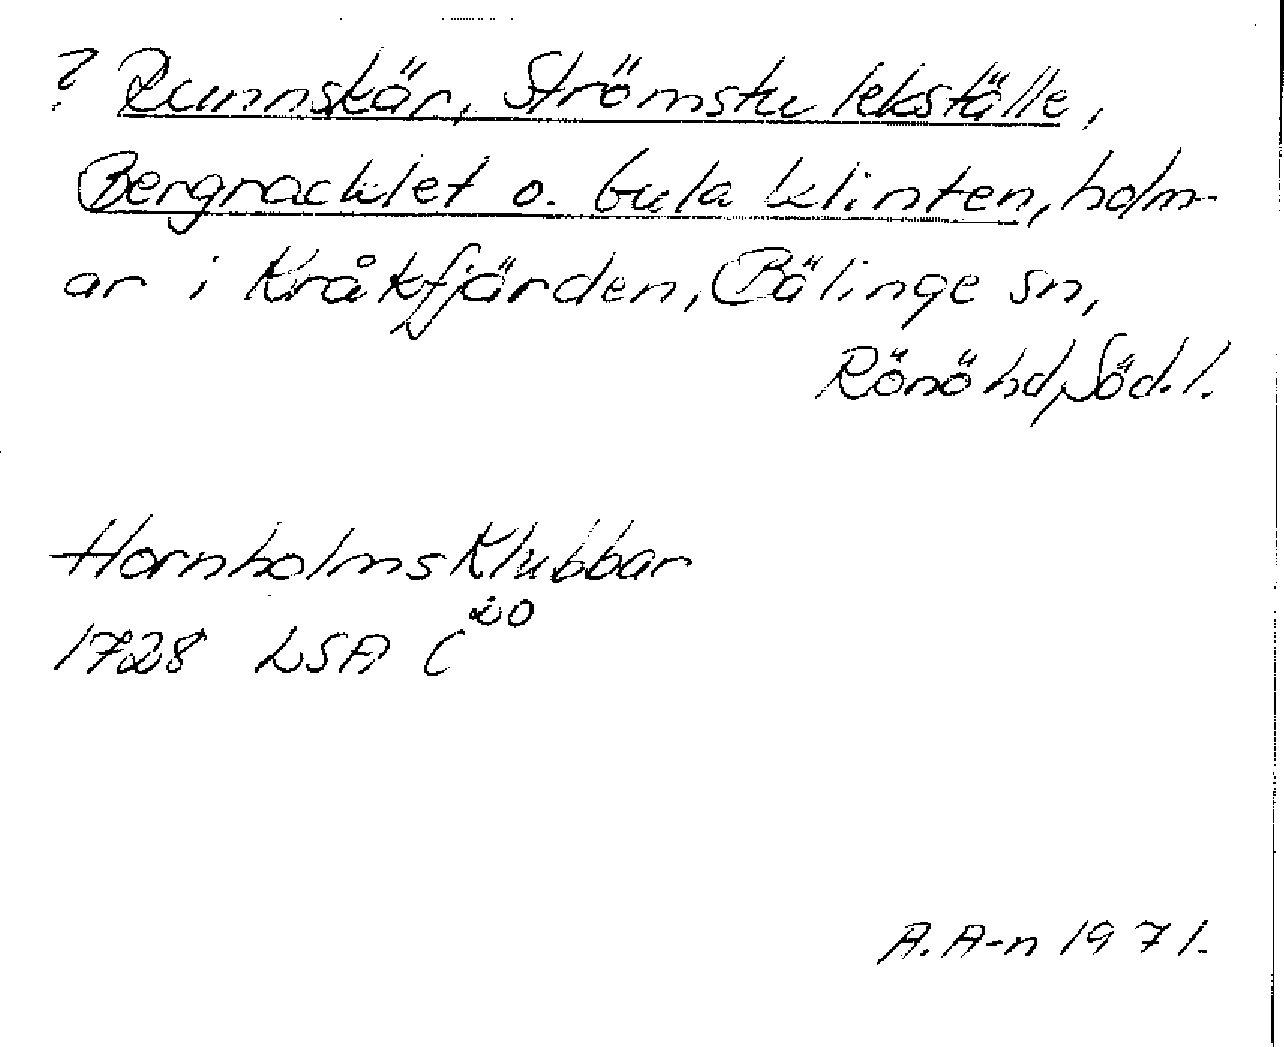 ? Runnskär, Strömsku lekställe,
Bergnacklet o. Gula klinten, holm-
ar i Kråkfjärden, Bälinge sn,
Rönö hd, Söd.l.
Hornholms Klubbar
1728 LSA C 20
A. A-n 1971.